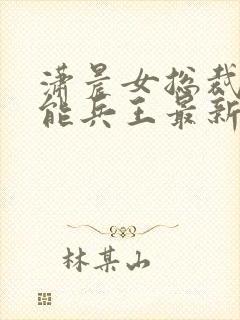 潇晨女总裁
能兵王最新
林某山